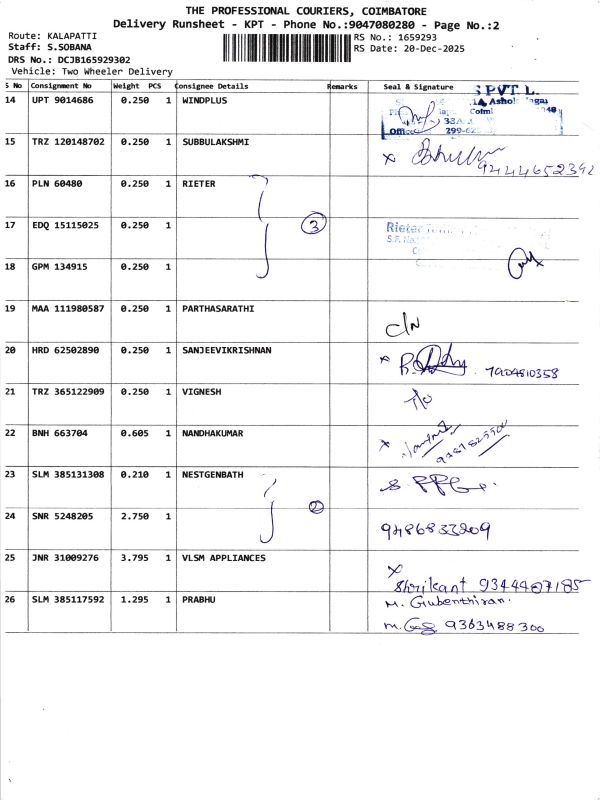 THE PROFESSIONAL COURIERS, COIMBATORE
Delivery Runsheet - KPT - Phone No.:9047080280 - Page No.:2
Route: KALAPATTI
RS No.: 1659293
Staff: S.SOBANA
RS Date: 20-Dec-2025
DRS No.: DCJB165929302
Vehicle: Two Wheeler Delivery
S No Consignment No Weight PCS Consignee Details Remarks Seal & Signature
14 UPT 9014686 0.250 1 WINDPLUS
S PVT. L.
Office
15 TRZ 120148702 0.250 1 SUBBULAKSHMI
9444652392
16 PLN 60480 0.250 1 RIETER
17 EDQ 15115025 0.250 1 3
Rieter
S.F. No.
18 GPM 134915 0.250 1
19 MAA 111980587 0.250 1 PARTHASARATHI
C/N
20 HRD 62502890 0.250 1 SANJEEVIKRISHNAN
7904810358
21 TRZ 365122909 0.250 1 VIGNESH
22 BNH 663704 0.605 1 NANDHAKUMAR
23 SLM 385131308 0.210 1 NESTGENBATH
24 SNR 5248205 2.750 1 2
9486833209
25 JNR 31009276 3.795 1 VLSM APPLIANCES
x
Shrikant 9344487185
26 SLM 385117592 1.295 1 PRABHU
M. Gubenthiran.
9363488300